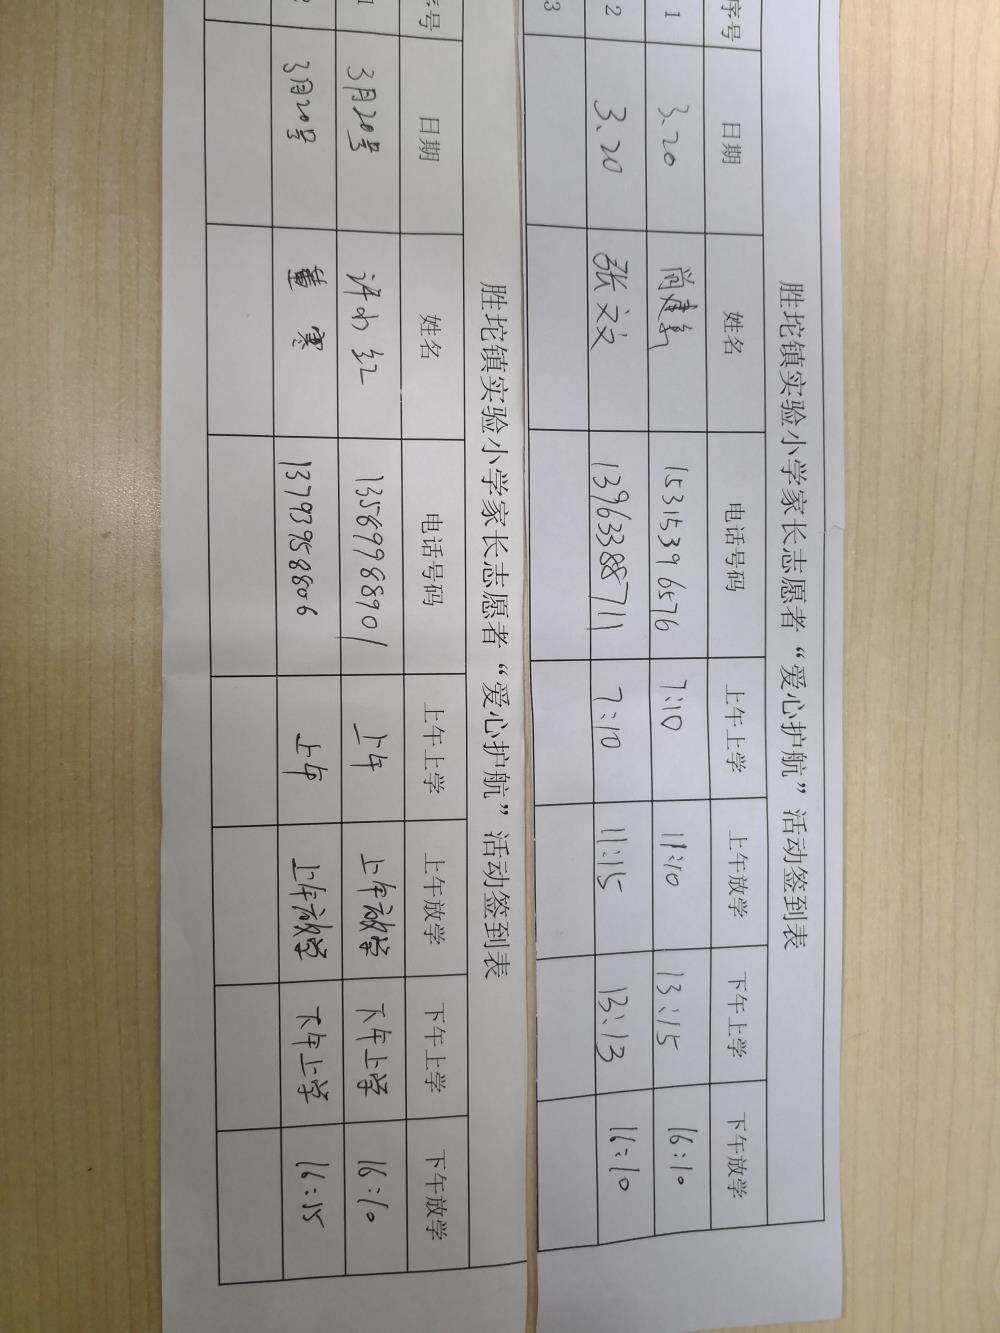 胜坨镇实验小学家长志愿者“爱心护航”活动签到表
序号 日期 姓名 电话号码 上午上学 上午放学 下午上学 下午放学
1 3.20 15315396576 7:10 11:10 13:15 16:10
2 3.20 张文文 13963388711 7:10 11:15 13:13 16:10
3
胜坨镇实验小学家长志愿者“爱心护航”活动签到表
序号 日期 姓名 电话号码 上午上学 上午放学 下午上学 下午放学
1 3月20号 许小红 13589988901 上午 上午放学 下午上学 16:10
3月20号 董寒 13793958806 上午 上午放学 下午上学 16:15